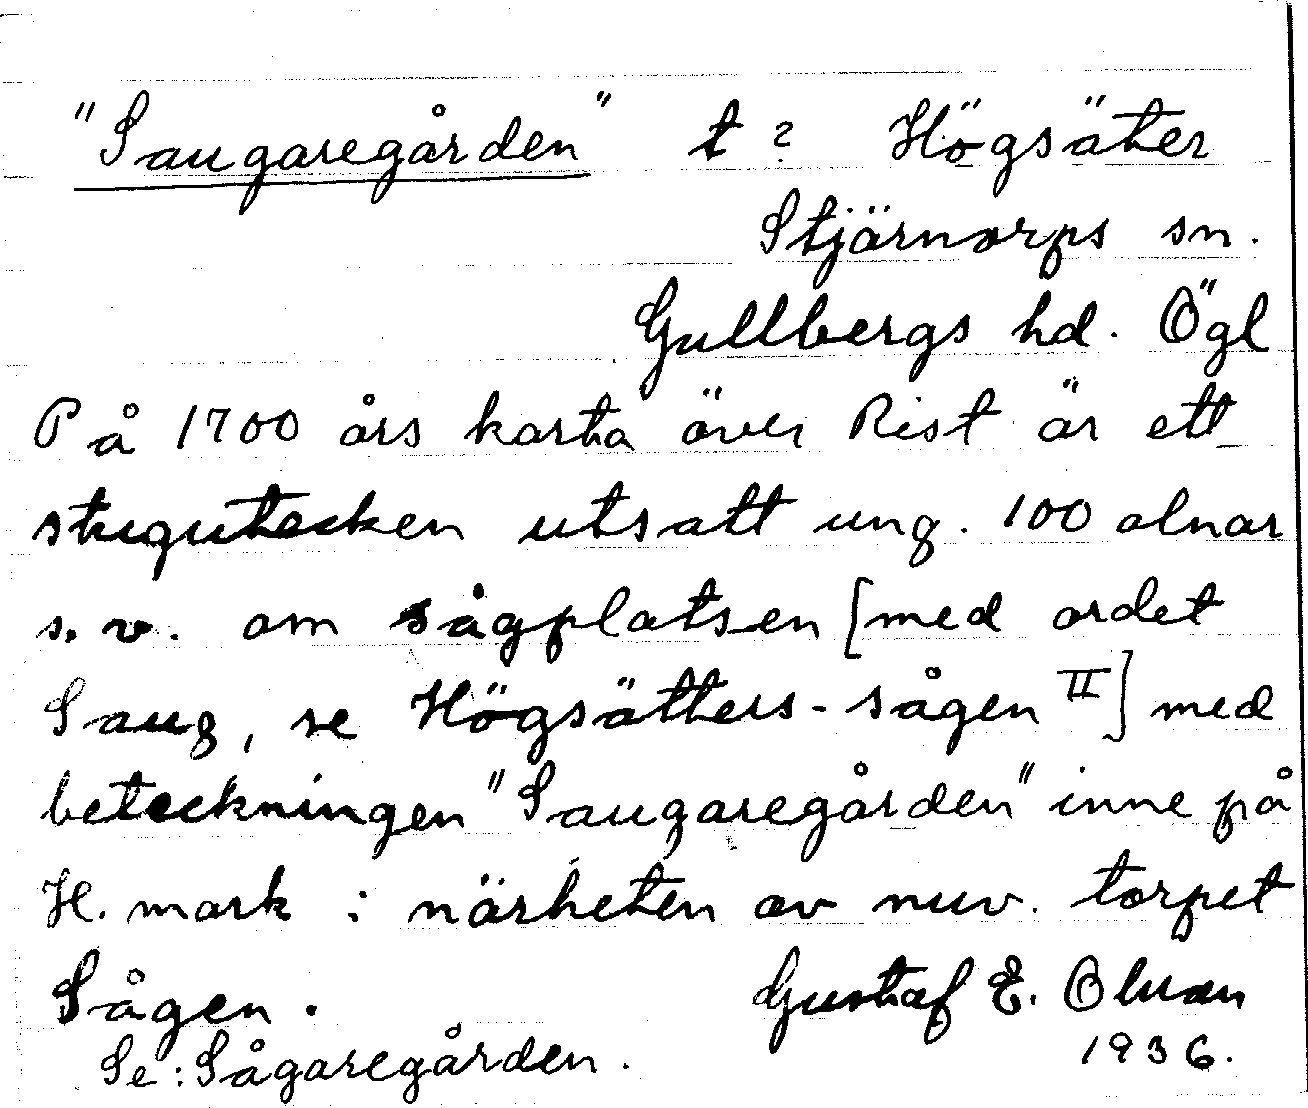 "Saugaregården" t ? Högsäter
Stjärnorps sn.
Gullbergs hd. Ögl
På 1700 års karta över Rist är ett
stugutecken utsatt ung. 100 alnar
s.v. om sågplatsen [med ordet
Saug, se Högsätters-sågen II] med
beteckningen "Saugaregården" inne på
H. mark i närheten av nuv. torpet
Sågen. Gustaf E. Olman
Se: Sågaregården. 1936.